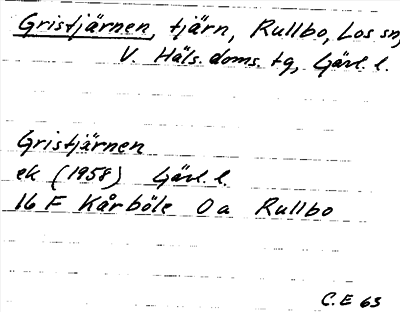 Gristjärnen, tjärn, Rullbo, Los sn,
V. Häls. doms. tg, Gävl. l.
Gristjärnen
ek (1958) Gävl. l.
16 F Kårböle 0a Rullbo
C.E 63